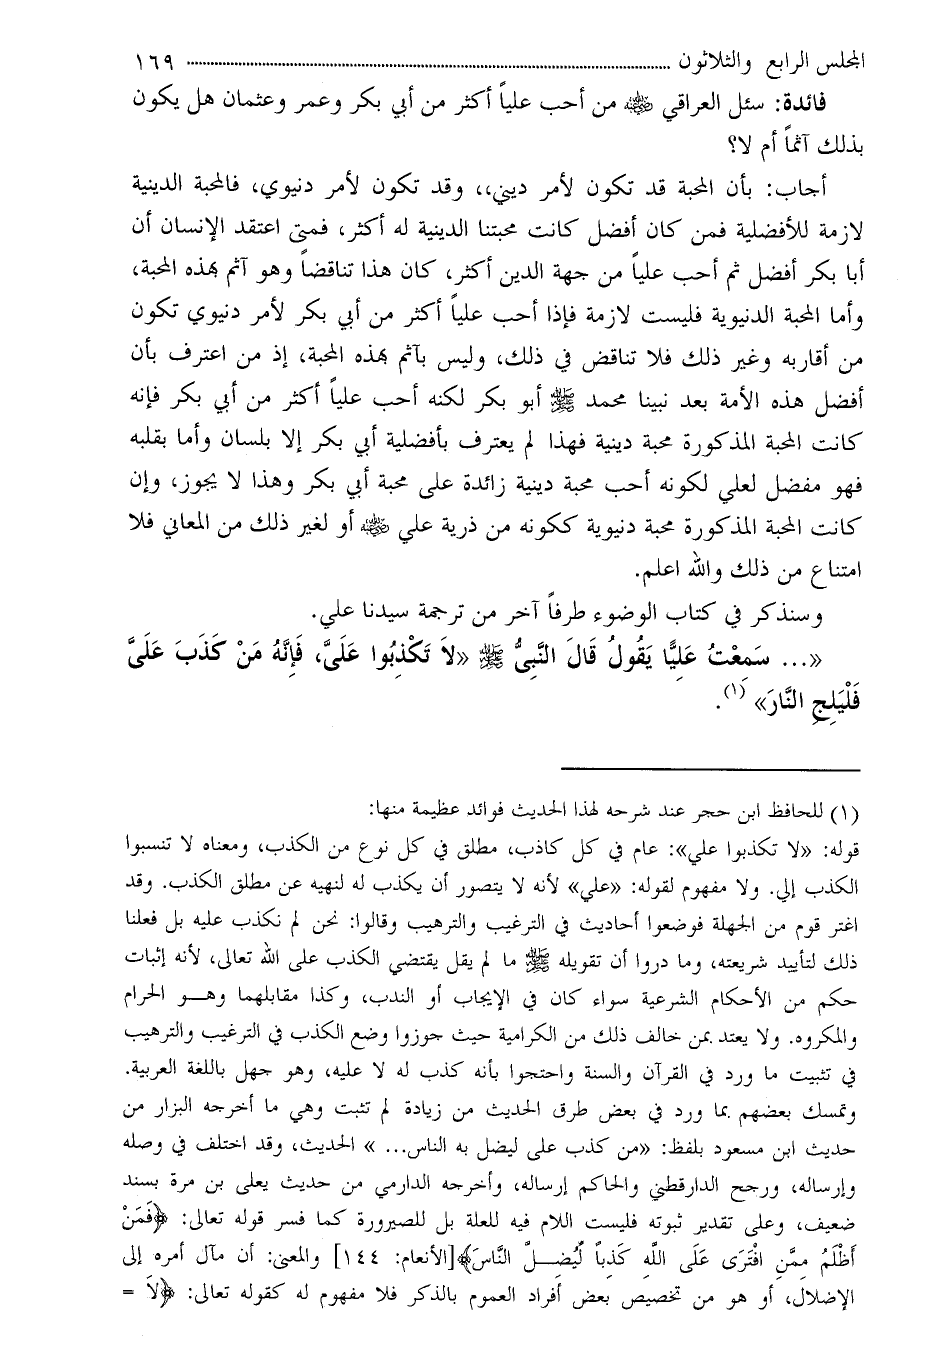 المجلس الرابع والثلاثون ........................................................ ١٦٩
فائدة: سئل العراقي رضي الله عنه من أحب علياً أكثر من أبي بكر وعمر وعثمان هل يكون
بذلك آثماً أم لا؟
أجاب: بأن المحبة قد تكون لأمر ديني،، وقد تكون لأمر دنيوي، فالمحبة الدينية
لازمة للأفضلية فمن كان أفضل كانت محبتنا الدينية له أكثر، فمتى اعتقد الإنسان أن
أبا بكر أفضل ثم أحب علياً من جهة الدين أكثر، كان هذا تناقضاً وهو آثم بهذه المحبة،
وأما المحبة الدنيوية فليست لازمة فإذا أحب علياً أكثر من أبي بكر لأمر دنيوي تكون
من أقاربه وغير ذلك فلا تناقض في ذلك، وليس بآثم بهذه المحبة، إذ من اعترف بأن
أفضل هذه الأمة بعد نبينا محمد ﷺ أبو بكر لكنه أحب علياً أكثر من أبي بكر فإنه
كانت المحبة المذكورة محبة دينية فهذا لم يعترف بأفضلية أبي بكر إلا بلسان وأما بقلبه
فهو مفضل لعلي لكونه أحب محبة دينية زائدة على محبة أبي بكر وهذا لا يجوز، وإن
كانت المحبة المذكورة محبة دنيوية ككونه من ذرية علي رضي الله عنه أو لغير ذلك من المعاني فلا
امتناع من ذلك والله اعلم.
وسنذكر في كتاب الوضوء طرفاً آخر من ترجمة سيدنا علي.
«... سَمِعْتُ عَلِيًّا يَقُولُ قَالَ النَّبِيُّ ﷺ «لاَ تَكْذِبُوا عَلَيَّ، فَإِنَّهُ مَنْ كَذَبَ عَلَيَّ
فَلْيَلِجِ النَّارَ» (١).
(١) للحافظ ابن حجر عند شرحه لهذا الحديث فوائد عظيمة منها:
قوله: «لا تكذبوا علي»: عام في كل كاذب، مطلق في كل نوع من الكذب، ومعناه لا تنسبوا
الكذب إلي. ولا مفهوم لقوله: «علي» لأنه لا يتصور أن يكذب له لنهيه عن مطلق الكذب. وقد
اغتر قوم من الجهلة فوضعوا أحاديث في الترغيب والترهيب وقالوا: نحن لم نكذب عليه بل فعلنا
ذلك لتأييد شريعته، وما دروا أن تقويله ﷺ ما لم يقل يقتضي الكذب على الله تعالى، لأنه إثبات
حكم من الأحكام الشرعية سواء كان في الإيجاب أو الندب، وكذا مقابلهما وهـــو الحرام
والمكروه. ولا يعتد بمن خالف ذلك من الكرامية حيث جوزوا وضع الكذب في الترغيب والترهيب
في تثبيت ما ورد في القرآن والسنة واحتجوا بأنه كذب له لا عليه، وهو جهل باللغة العربية.
وتمسك بعضهم بما ورد في بعض طرق الحديث من زيادة لم تثبت وهي ما أخرجه البزار من
حديث ابن مسعود بلفظ: «من كذب على ليضل به الناس... » الحديث، وقد اختلف في وصله
وإرساله، ورجح الدارقطني والحاكم إرساله، وأخرجه الدارمي من حديث يعلى بن مرة بسند
ضعيف، وعلى تقدير ثبوته فليست اللام فيه للعلة بل للصيرورة كما فسر قوله تعالى: ﴿فَمَنْ
أَظْلَمُ مِمَّنِ افْتَرَى عَلَى اللَّهِ كَذِباً لِّيُضِــلَّ النَّاسَ﴾[الأنعام: ١٤٤] والمعنى: أن مآل أمره إلى
الإضلال، أو هو من تخصيص بعض أفراد العموم بالذكر فلا مفهوم له كقوله تعالى: ﴿لاَ =